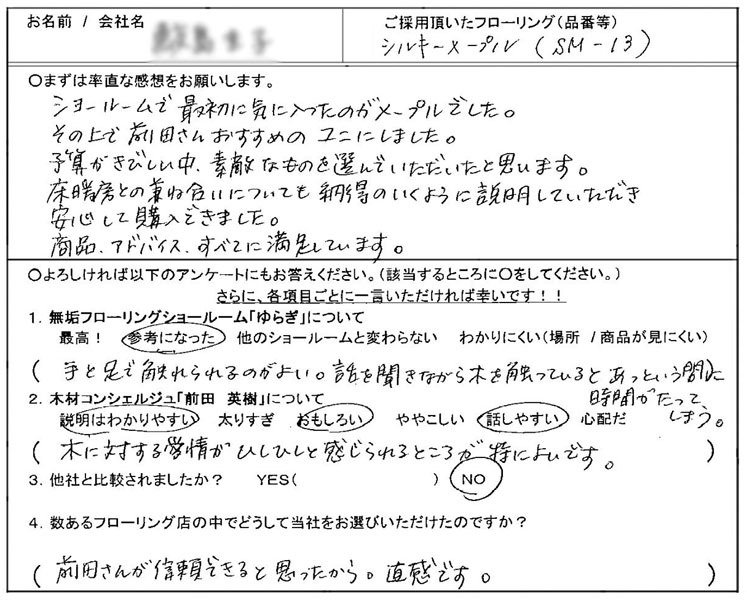 お名前 / 会社名
ご採用頂いたフローリング(品番等)
シルキーメープル (SM-13)
〇まずは率直な感想をお願いします。
ショールームで最初に気に入ったのがメープルでした。
その上で前田さんおすすめのユニにしました。
予算がきびしい中、素敵なものを選んでいただいたと思います。
床暖房との兼ね合いについても納得のいくように説明していただき
安心して購入できました。
商品、アドバイス、すべてに満足しています。
〇よろしければ以下のアンケートにもお答えください。(該当するところに〇をしてください。)
さらに、各項目ごとに一言いただければ幸いです！！
1. 無垢フローリングショールーム「ゆらぎ」について
最高！ 参考になった 他のショールームと変わらない わかりにくい(場所 / 商品が見にくい)
( 手と足で触れられるのがよい。話を聞きながら木を触っているとあっという間に
時間がたって
しまう。)
2. 木材コンシェルジュ「前田 英樹」について
説明はわかりやすい 太りすぎ おもしろい ややこしい 話しやすい 心配だ
( 木に対する愛情がひしひしと感じられるところが特によいです。 )
3. 他社と比較されましたか？ YES( ) NO
4. 数あるフローリング店の中でどうして当社をお選びいただけたのですか？
( 前田さんが信頼できると思ったから。直感です。 )